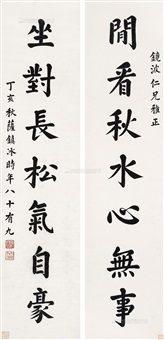 鏡波仁兄雅正
閒看秋水心無事
坐對長松氣自豪
丁亥秋薩鎮冰時年八十有九